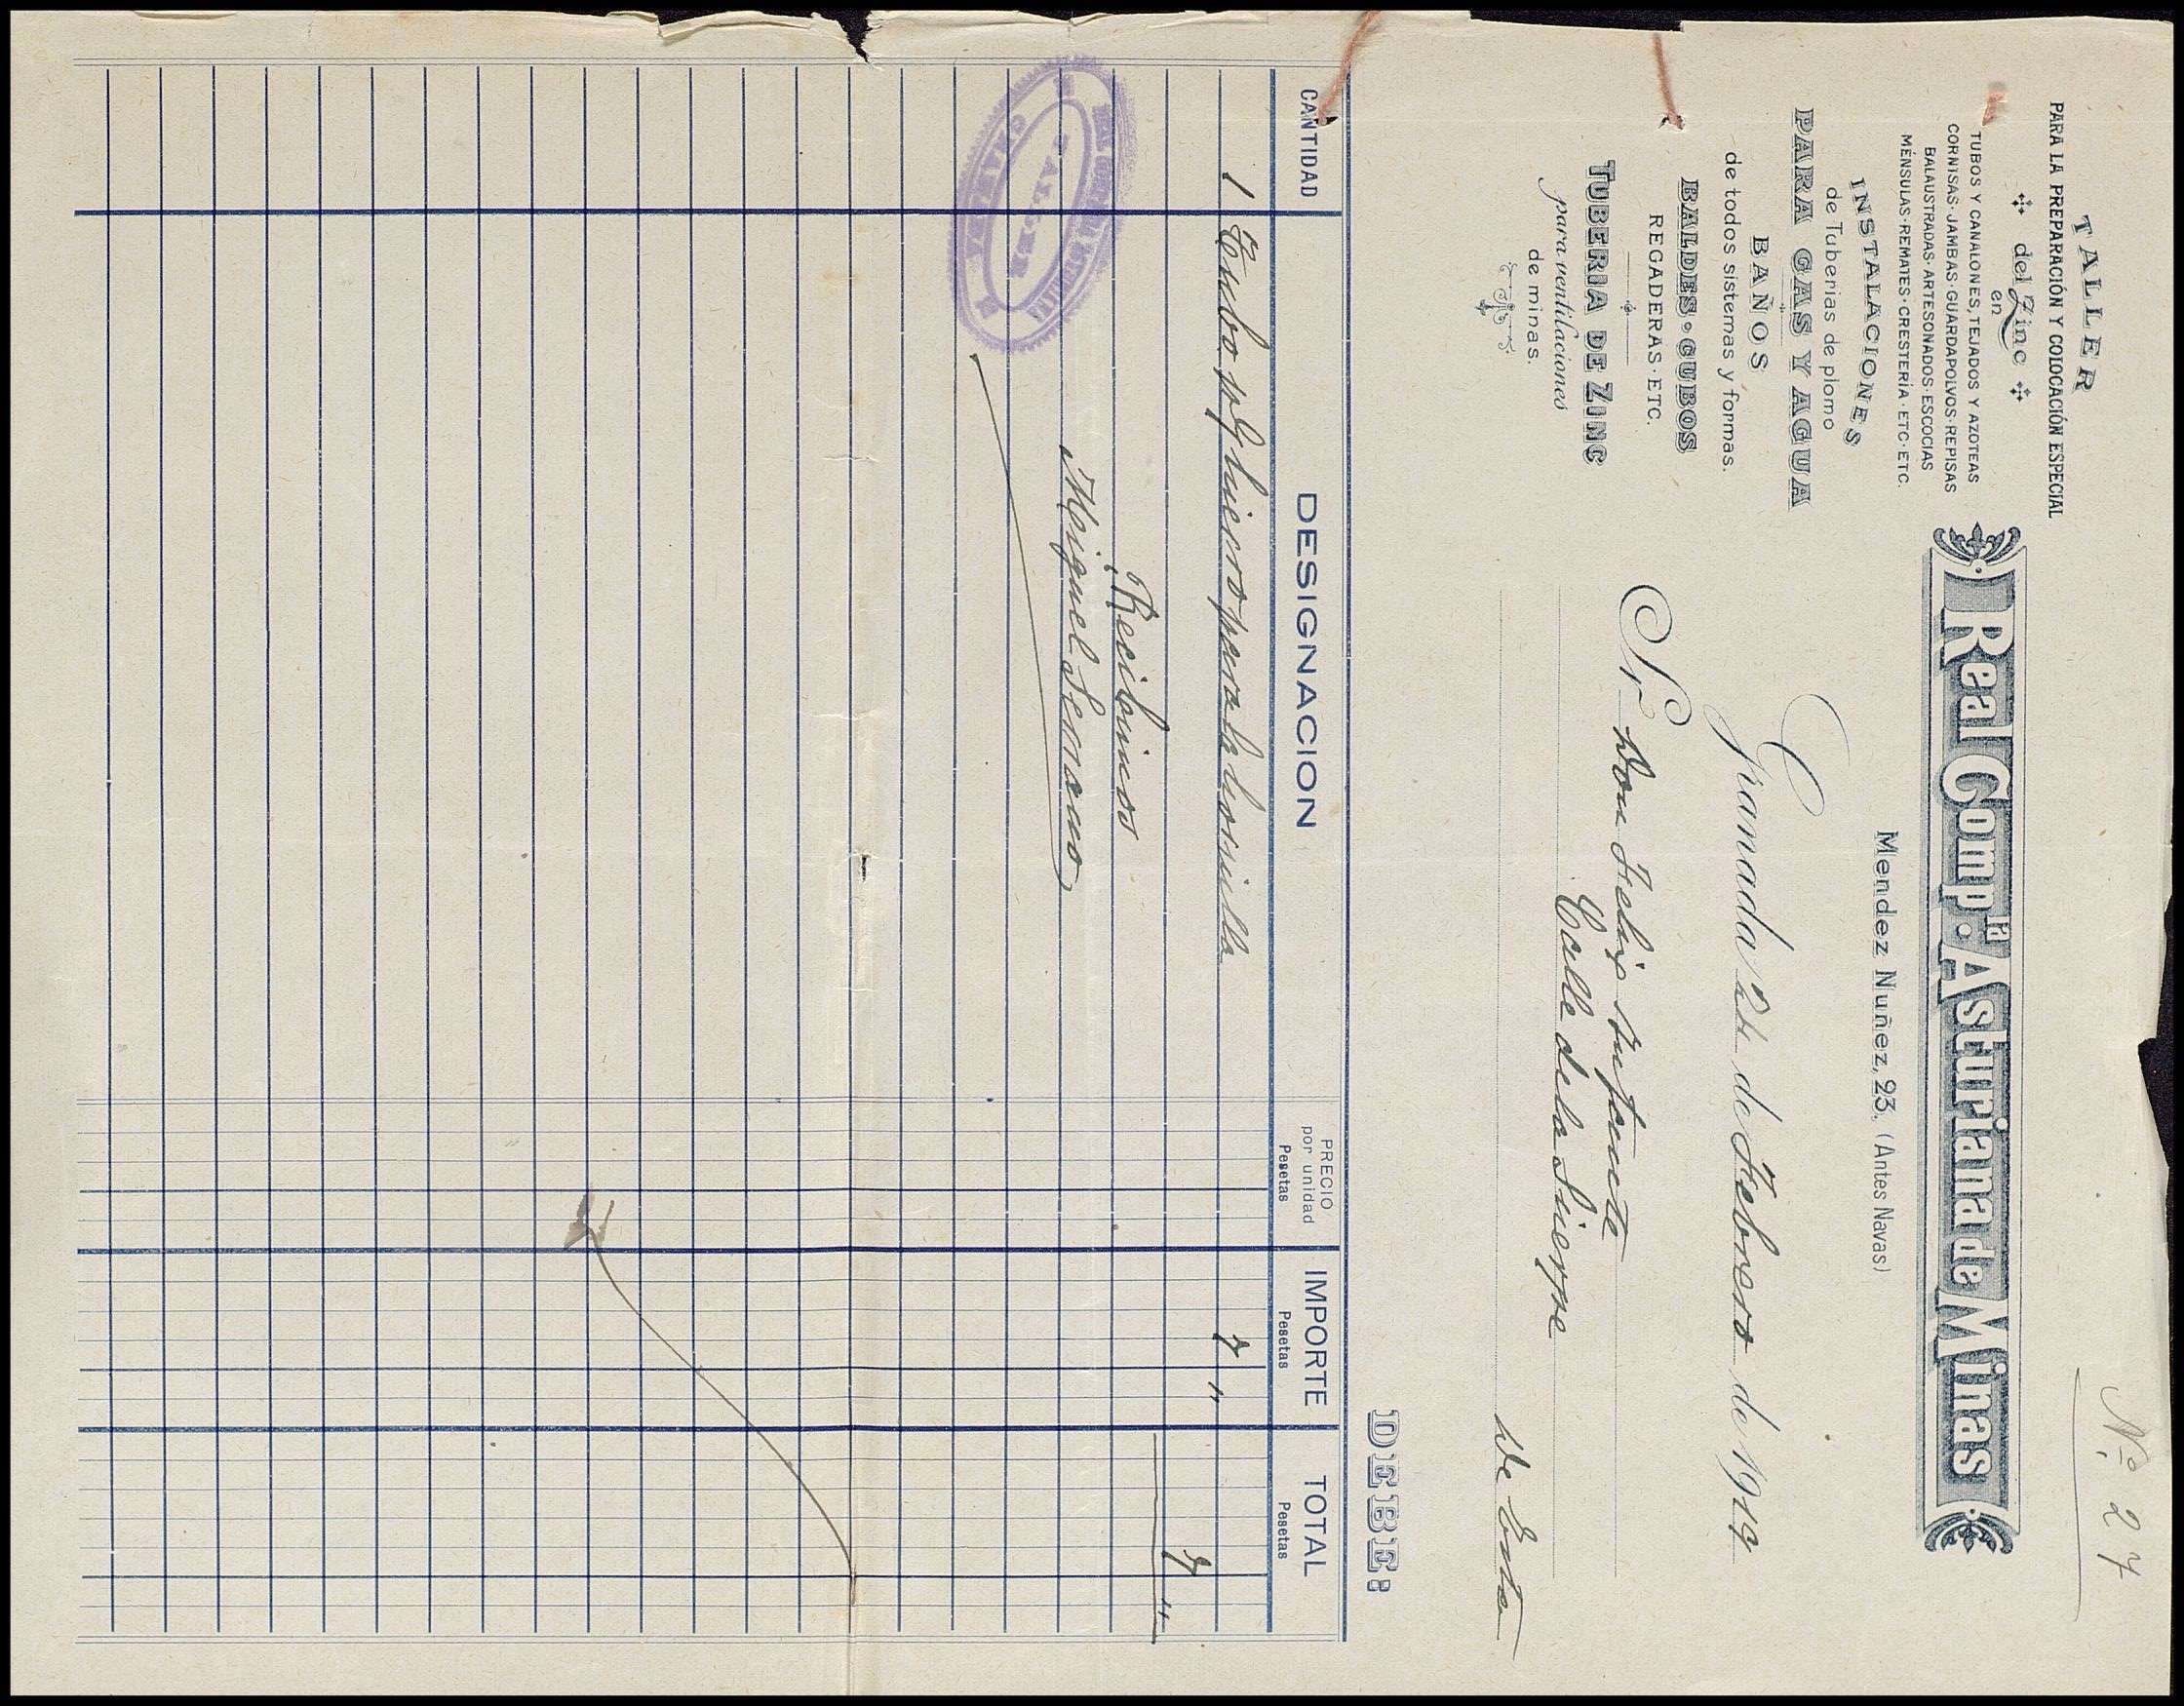 Nº 27
TALLER
PARA LA PREPARACIÓN Y COLOCACIÓN ESPECIAL
del Zinc
en
TUBOS Y CANALONES, TEJADOS Y AZOTEAS
CORNISAS·JAMBAS·GUARDAPOLVOS·REPISAS
BALAUSTRADAS·ARTESONADOS·ESCOCIAS
MÉNSULAS·REMATES·CRESTERÍA·ETC·ETC.
INSTALACIONES
de Tuberias de plomo
PARA GAS Y AGUA
BAÑOS
de todos sistemas y formas.
BALDES·CUBOS
REGADERAS·ETC.
TUBERIA DE ZINC
para ventilaciones
de minas.
Real Comp.la Asturiana de Minas
Mendez Nuñez, 23, (Antes Navas)
Granada 24 de Febrero de 1919
Sr Don Felix Infante
Calle de la Sierpe
De Esta
DEBE:
CANTIDAD DESIGNACION PRECIO por unidad Pesetas IMPORTE Pesetas TOTAL Pesetas
1 Cubo hierro para la hornilla 7 "
7 "
Recibimos
Miguel Serrano
REAL COMPAÑIA ASTURIANA
TALLER
GRANADA